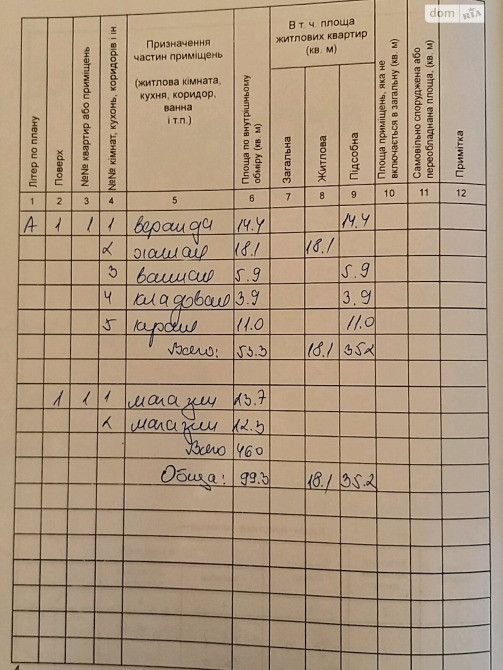 dom RIA
Літер по плану
Поверх
№№ квартир або приміщень
№№ кімнат, кухонь, коридорів і ін
Призначення частин приміщень (житлова кімната, кухня, коридор, ванна і т.п.)
Площа по внутрішньому обміру (кв. м)
В т. ч. площа житлових квартир (кв. м)
Загальна
Житлова
Підсобна
Площа приміщень, яка не включається в загальну (кв. м)
Самовільно споруджена або переобладнана площа, (кв. м)
Примітка
1 2 3 4 5 6 7 8 9 10 11 12
А 1 1 1 веранда 14.4 14.4
2 жилая 18.1 18.1
3 ванная 5.9 5.9
4 кладовая 3.9 3.9
5 кухня 11.0 11.0
Всего: 53.3 18.1 35.2
1 1 1 магазин
2 магазин
Всего 460
Общая: 99.3 18.1 35.2